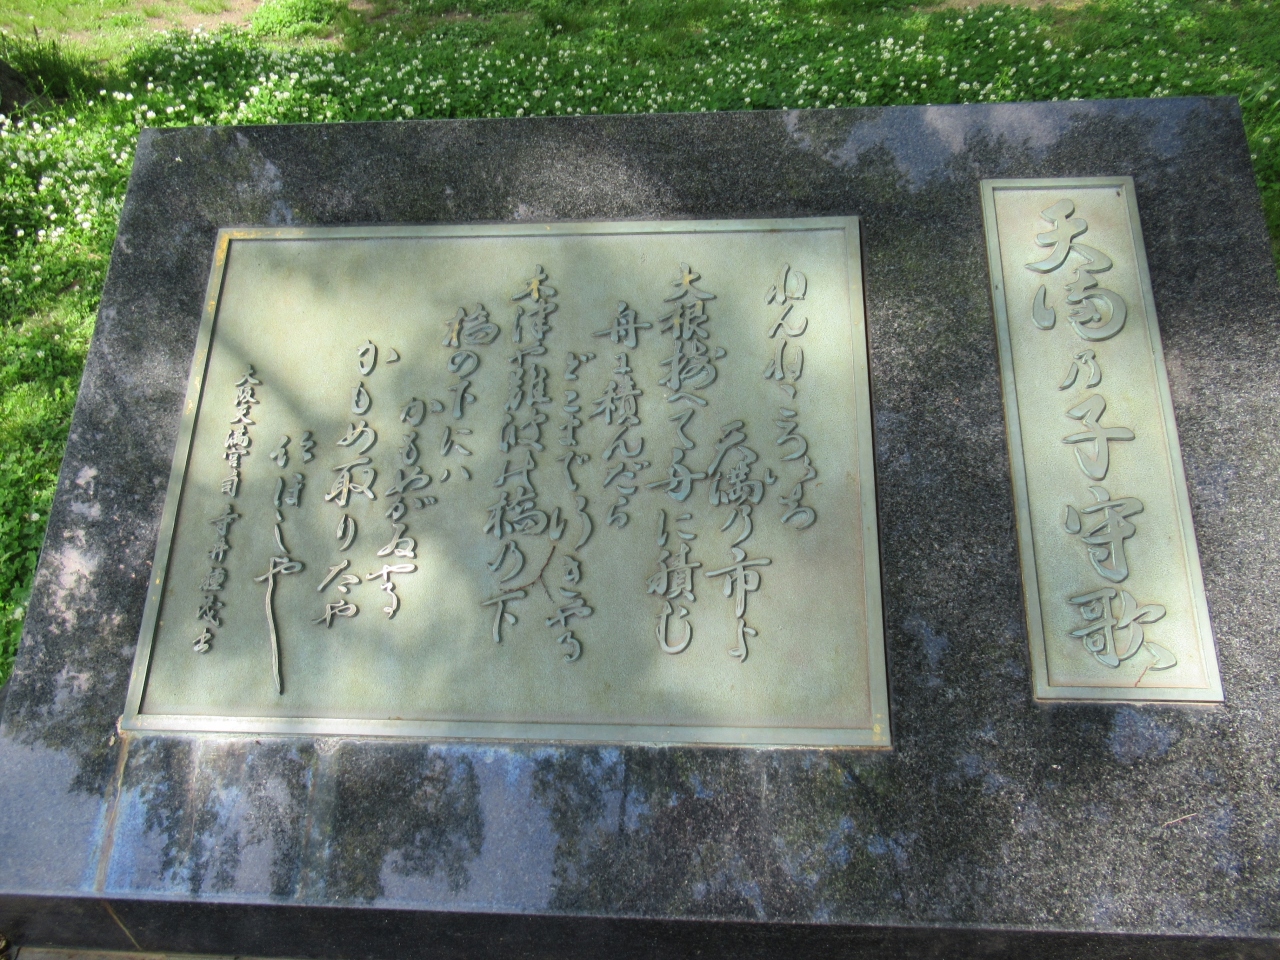 天満の子守歌
ねんねころいち
天満の市よ
大根揃へて舟に積む
舟に積んだら
どこまでいきやる
木津や難波の橋の下
橋の下には
かもめがゐやる
かもめ取りたや
網ほしや
大阪天満宮宮司 寺井種茂 書